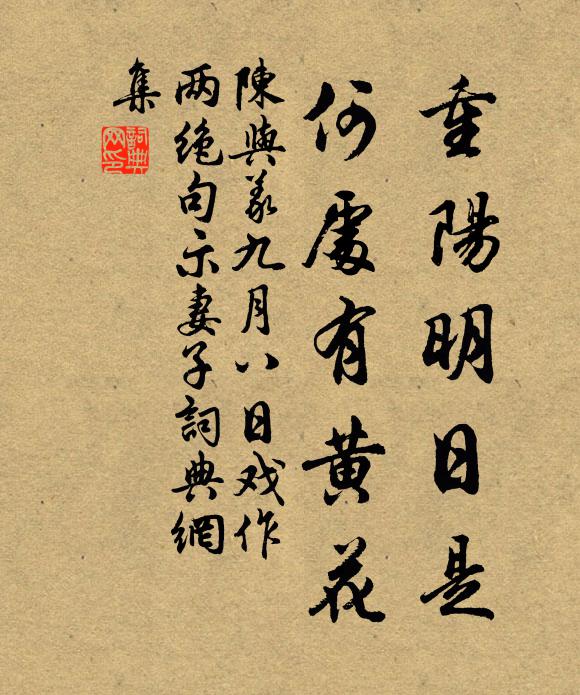 重陽明日是
何處有黄花
陳與義九月八日戏作
两绝句示妻子詞典網
集
詞典
网印